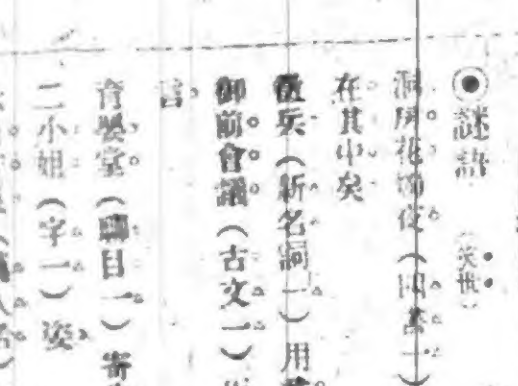 ◉謎語
洞房花燭夜（四書一）
在其中矣
徵兵（新名詞一）用
御前會議（古文一）
言
育嬰堂（聊目一）
二小姐（字一）姿